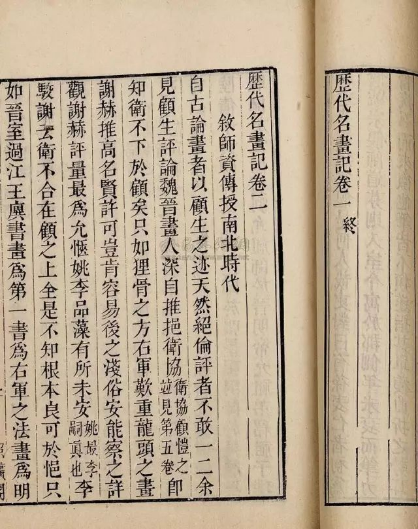 歷代名畫記卷一 終
歷代名畫記卷二
敘師資傳授南北時代
自古論畫者以顧生之迹天然絕倫評者不敢一二余
見顧生評論魏晉畫人深自推挹衛協衛協顧愷之竝見第五卷即
知衛不下於顧矣只如狸骨之方右軍歎重龍頭之畫
謝赫推高名賢許可豈肯容易後之淺俗安能察之詳
觀謝赫評量最爲允愜姚李品藻有所未安姚最李嗣真也李
駁謝云衛不合在顧之上全是不知根本良可於悒只
如晉室過江王廙書畫爲第一書爲右軍之法畫爲明